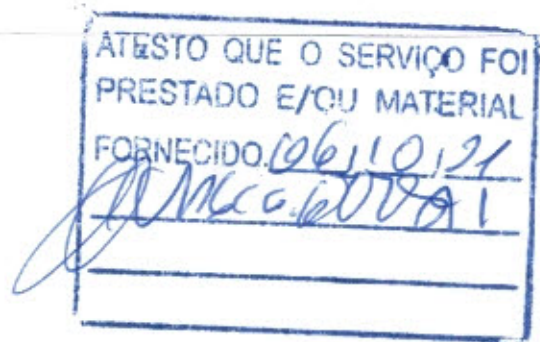 ATESTO QUE O SERVIÇO FOI
PRESTADO E/OU MATERIAL
FORNECIDO. 06,10,21